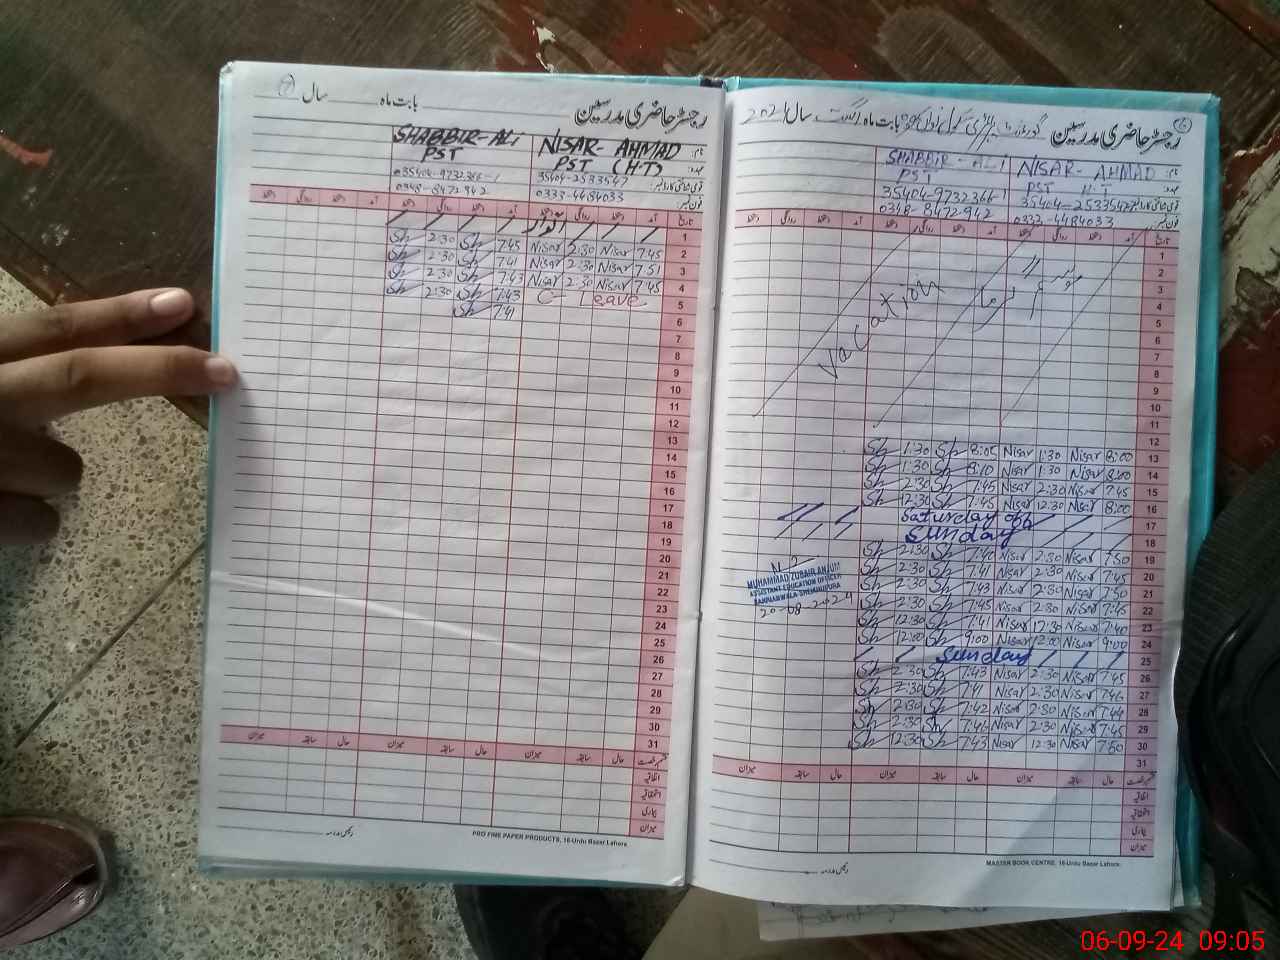 رجسٹر حاضری مدرسین بابت ماہ اگست سال 2024
نام SHABBIR-ALI NISAR-AHMAD
عہدہ PST PST H.T
قومی شناختی کارڈ نمبر 35404-9732366-1
فون نمبر 0348-8472942 0333-4484033
تاریخ آمد دستخط روانگی دستخط آمد دستخط روانگی دستخط آمد دستخط روانگی دستخط
1
2
3
4
5
6
7
8
9
10
11
Vacation
موسم گرما
12
13 8:00 Nisar 1:30 Nisar 8:05 Sh 1:30 Sh
14 8:00 Nisar 1:30 Nisar 8:10 Sh 1:30 Sh
15 7:45 Nisar 2:30 Nisar 7:45 Sh 2:30 Sh
16 8:00 Nisar 12:30 Nisar 7:45 Sh 12:30 Sh
17 Saturday off
18 Sunday
19 7:50 Nisar 2:30 Nisar Sh 2:30 Sh
20 7:45 Nisar 2:30 Nisar 7:41 Sh 2:30 Sh
21 7:50 Nisar 2:30 Nisar 7:43 Sh 2:30 Sh
22 7:45 Nisar 2:30 Nisar 7:45 Sh 2:30 Sh
23 7:40 Nisar 12:30 Nisar 7:41 Sh 12:30 Sh
24 9:00 Nisar 12:00 Nisar 9:00 Sh 12:00 Sh
25 Sunday
26 7:45 Nisar 2:30 Nisar 7:43 Sh 2:30 Sh
27 7:46 Nisar 2:30 Nisar 7:41 Sh 2:30 Sh
28 7:44 Nisar 2:30 Nisar 7:42 Sh 2:30 Sh
29 7:45 Nisar 2:30 Nisar Sh 2:30 Sh
30 7:50 Nisar 12:30 Nisar 7:43 Sh 12:30 Sh
31
MUHAMMAD ZUBAIR ANJUM
ASSISTANT EDUCATION OFFICER
20-08-2024
حال سابقہ میزان حال سابقہ میزان حال سابقہ میزان
اتفاقیہ
استحقاقیہ
بیماری
میزان
MASTER BOOK CENTRE, 16-Urdu Bazar Lahore.
رجسٹر حاضری مدرسین بابت ماہ سال
نام SHABBIR-ALI NISAR-AHMAD
عہدہ PST PST (H.T)
قومی شناختی کارڈ نمبر 35404-9732366-1 35404-2533547
فون نمبر 0348-8472942 0333-4484033
تاریخ آمد دستخط روانگی دستخط آمد دستخط روانگی دستخط آمد دستخط روانگی دستخط
1 اتوار
2 7:45 Nisar 2:30 Nisar 7:45 Sh 2:30 Sh
3 7:51 Nisar 2:30 Nisar 7:41 Sh 2:30 Sh
4 7:45 Nisar 2:30 Nisar 7:43 Sh 2:30 Sh
5 C- Leave 7:43 Sh 2:30 Sh
6 7:41 Sh
7
8
9
10
11
12
13
14
15
16
17
18
19
20
21
22
23
24
25
26
27
28
29
30
31
حال سابقہ میزان حال سابقہ میزان حال سابقہ میزان
اتفاقیہ
استحقاقیہ
بیماری
میزان
PRO FINE PAPER PRODUCTS, 16-Urdu Bazar Lahore.
06-09-24 09:05